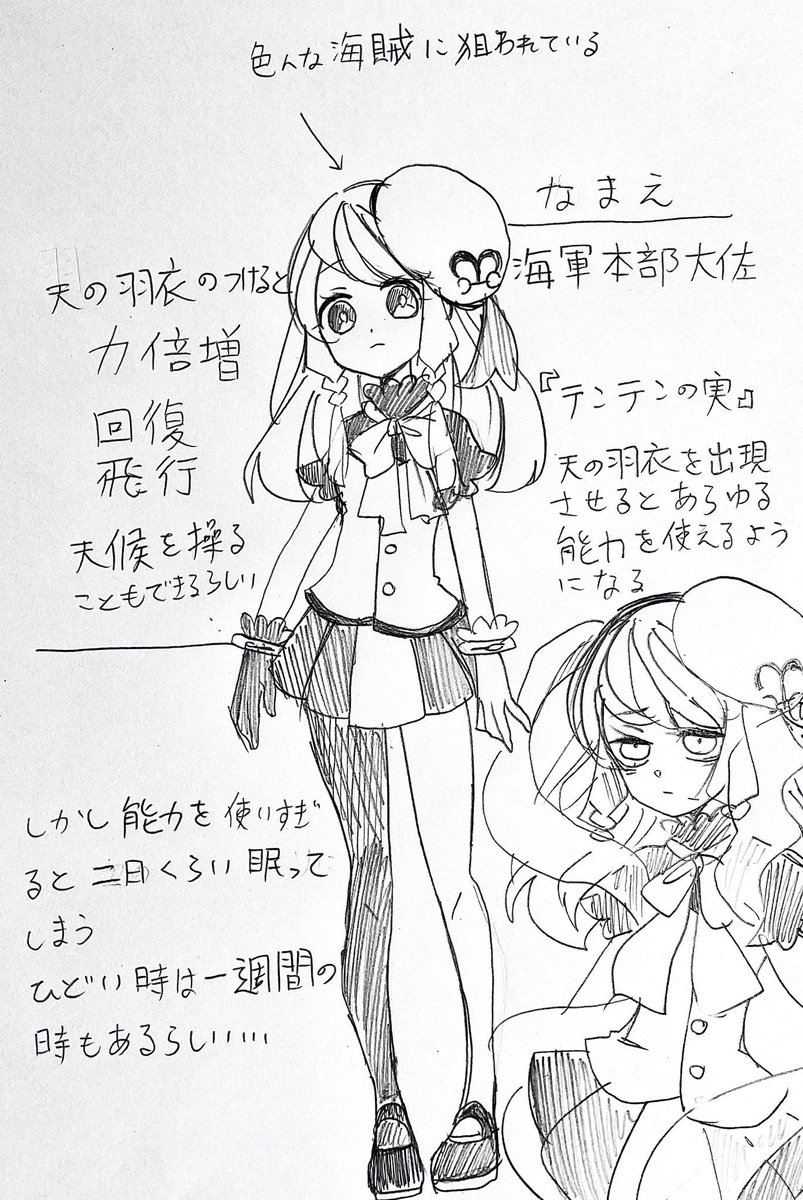 色んな海賊に狙われている
なまえ
海軍本部大佐
天の羽衣のつけると
力倍増
回復
飛行
天候を操る
こともできるらしい
『テンテンの実』
天の羽衣を出現
させるとあらゆる
能力を使えるよう
になる
しかし能力を使いすぎ
ると二日くらい眠って
しまう
ひどい時は一週間の
時もあるらしい……